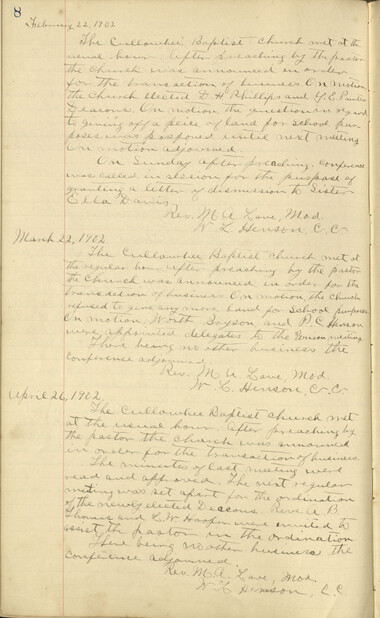 8
February 22, 1902
The Cullowhee Baptist Church met at the
usual hour. After preaching by the pastor
the Church was announced in order
for the transaction of business. On motion
the Church elected D. H. Phillips and Y. E. Painter
Deacons. On motion the question in regard
to giving off a peice of land for school pur-
poses was posponed until next meeting
On motion adjourned.
On Sunday after preaching, conference
was called in session for the purpose of
granting a letter of dismission to Sister
Ella Davis.
Rev. M. A. Love, Mod.
W. L. Henson, C. C.
March 22, 1902.
The Cullowhee Baptist church met at
the regular hour. After preaching by the pastor
the Church was announced in order for the
transaction of business. On motion, the church
refused to give any more land for school purposes
On motion, and P. C. Henson
were appointed delegates to the Union meeting.
There being no other business the
conference adjourned.
Rev. M. A. Love, Mod.
W. L. Henson, C. C.
April 26, 1902.
The Cullowhee Baptist church met
at the usual hour. After preaching by
the pastor the church was announced
in order for the transaction of business.
The minutes of last meeting were
read and approved. The next regular
meeting was set apart for the ordination
of the newly elected Deacons. Revs. A. B.
Thomas and L. W. Hooper were invited to
assist the pastor in the ordination
There being no other business the
conference adjourned.
Rev. M. A. Love, Mod.
W. L. Henson, C. C.